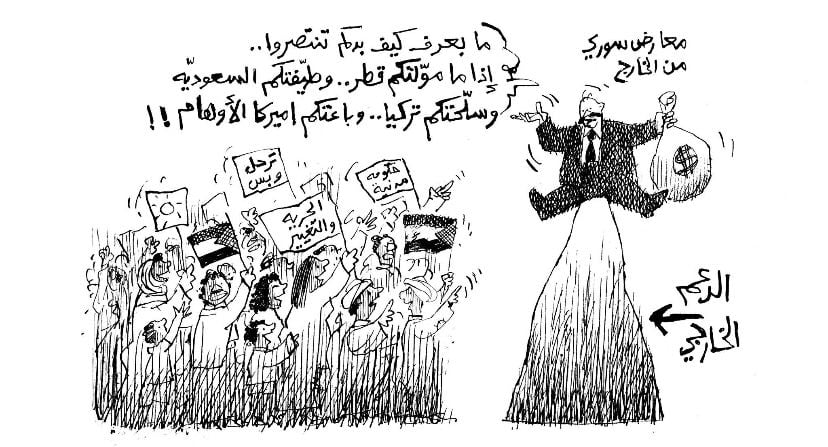 ما بعرف كيف بدكم تنتصروا..
إذا ما موّلتكم قطر.. وطيّفتكم السعوديّة
وسلّحتكم تركيا.. وباعتكم اميركا الأوهام !!
معارض سوري
من الخارج
ترحل
وبس
حكومة
مدنية
الحرية
والتغيير
$
الدعم
الخارجي